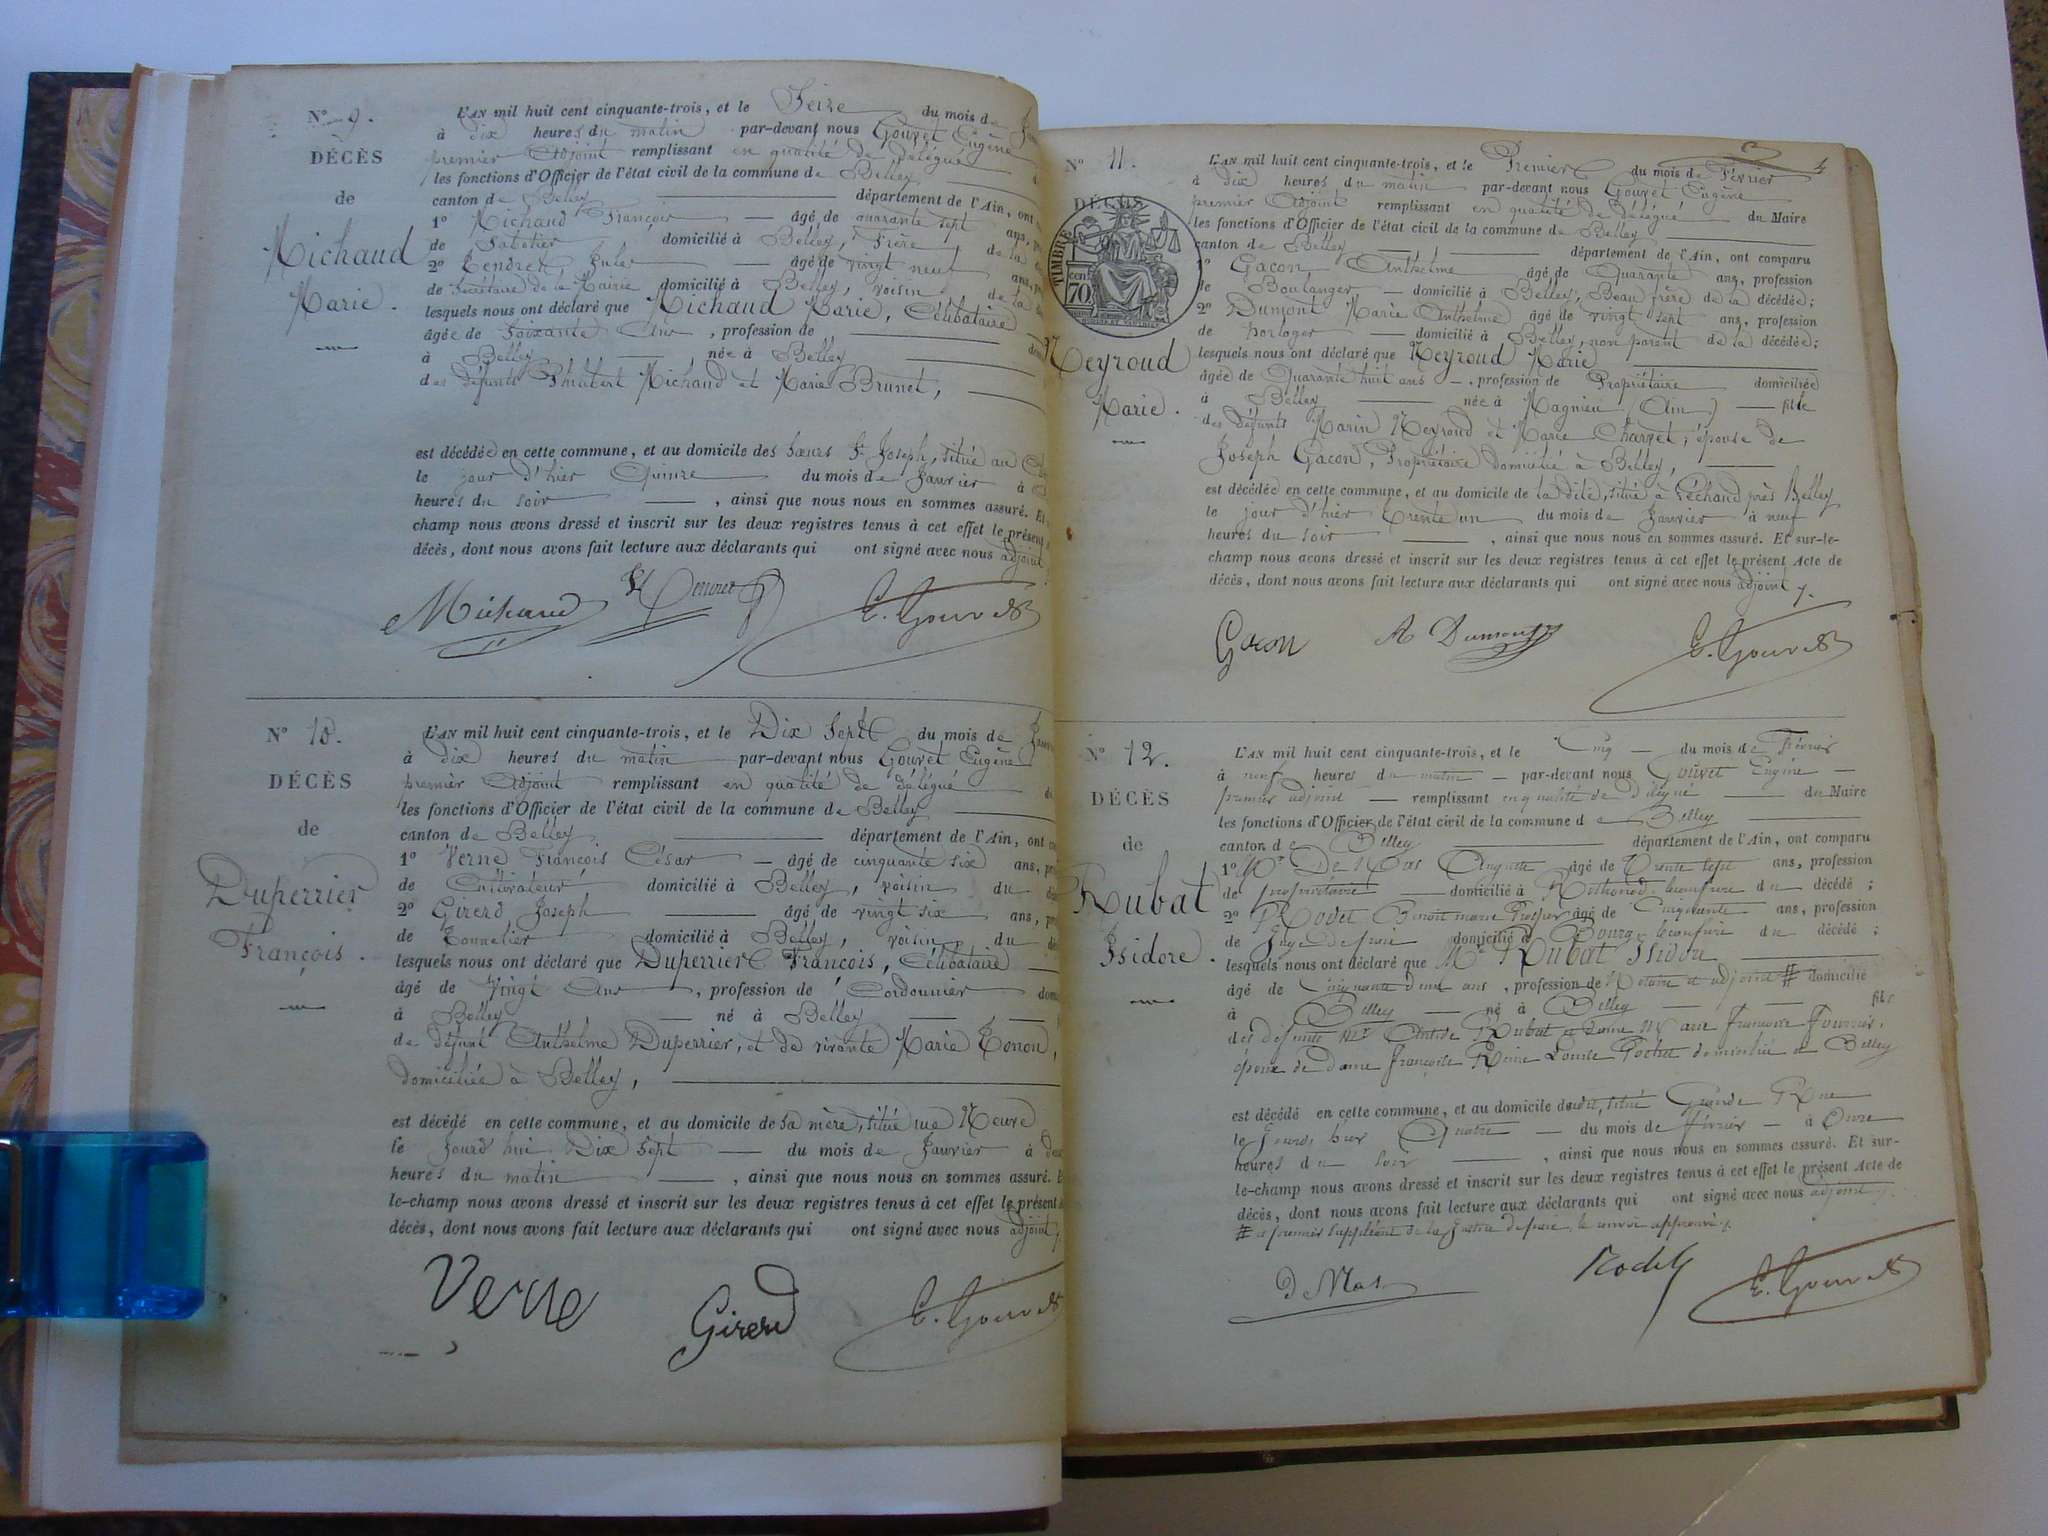 N° 9.
DÉCÈS
de
Michaud
Marie.
L'AN mil huit cent cinquante-trois, et le Seize du mois de
à dix heures du matin par-devant nous Gouvet Eugène
premier Adjoint remplissant en qualité de délégué
les fonctions d'Officier de l'état civil de la commune de Belley
canton de Belley département de l'Ain, ont
1° Michaud François âgé de quarante sept ans,
de Sabotier domicilié à Belley, Frère de la
2° Tendret Jules âgé de vingt neuf ans,
de Secrétaire de la Mairie domicilié à Belley, voisin de la
lesquels nous ont déclaré que Michaud Marie, Célibataire
âgée de Soixante Ans, profession de
à Belley née à Belley
des défunts Philibert Michaud et Marie Brunet,
est décédée en cette commune, et au domicile des Sœurs St Joseph, situé au
le jour d'hier Quinze du mois de Janvier à
heures du soir, ainsi que nous nous en sommes assuré. Et
champ nous avons dressé et inscrit sur les deux registres tenus à cet effet le présent
décès, dont nous avons fait lecture aux déclarants qui ont signé avec nous adjoint
Michaud Tendret E. Gouvet
N° 10.
DÉCÈS
de
Duperrier
François.
L'AN mil huit cent cinquante-trois, et le Dix Sept du mois de
à dix heures du matin par-devant nous Gouvet Eugène
premier Adjoint remplissant en qualité de délégué
les fonctions d'Officier de l'état civil de la commune de Belley
canton de Belley département de l'Ain, ont
1° Verne François César âgé de cinquante six ans,
de Cultivateur domicilié à Belley, voisin du
2° Girerd Joseph âgé de vingt six ans,
de Tonnelier domicilié à Belley, voisin, du
lesquels nous ont déclaré que Duperrier François, Célibataire
âgé de Vingt Ans, profession de Cordonnier
à Belley né à Belley
de défunt Anthelme Duperrier, et de vivante Marie Tonon,
domiciliée à Belley,
est décédé en cette commune, et au domicile de sa mère, situé rue Neuve
le Jourd'hui Dix Sept du mois de Janvier à
heures du matin, ainsi que nous nous en sommes assuré.
le-champ nous avons dressé et inscrit sur les deux registres tenus à cet effet le présent
décès, dont nous avons fait lecture aux déclarants qui ont signé avec nous adjoint
Verne Girerd E. Gouvet
N° 11.
DÉCÈS
TIMBRE
70 CENT
Neyroud
Marie.
L'AN mil huit cent cinquante-trois, et le Premier du mois de Février
à dix heures du matin par-devant nous Gouvet Eugène
premier Adjoint remplissant en qualité de délégué du Maire
les fonctions d'Officier de l'état civil de la commune de Belley
canton de Belley département de l'Ain, ont comparu
1° Gacon Anthelme âgé de Quarante ans, profession
de Boulanger domicilié à Belley, Beau frère de la décédée;
2° Dumont Marie Anthelme âgé de vingt sept ans, profession
de horloger domicilié à Belley, non parent de la décédée;
lesquels nous ont déclaré que Neyroud Marie
âgée de Quarante huit ans, profession de Propriétaire domiciliée
à Belley née à Magnieu (Ain) fille
des défunts Marin Neyroud et Marie Charvet; épouse de
Joseph Gacon, Propriétaire domicilié à Belley,
est décédée en cette commune, et au domicile de la dite, situé à près Belley
le jour d'hier Trente un du mois de Janvier à neuf
heures du soir, ainsi que nous nous en sommes assuré. Et sur-le-
champ nous avons dressé et inscrit sur les deux registres tenus à cet effet le présent Acte de
décès, dont nous avons fait lecture aux déclarants qui ont signé avec nous adjoint
Gacon A Dumont E. Gouvet
N° 12.
DÉCÈS
de
Rubat
Isidore.
L'AN mil huit cent cinquante-trois, et le Cinq du mois de Février
à neuf heures du matin par-devant nous Gouvet Eugène
premier adjoint remplissant en qualité de délégué du Maire
les fonctions d'Officier de l'état civil de la commune de Belley
canton de Belley département de l'Ain, ont comparu
1° Mr De Mas Auguste âgé de Trente sept ans, profession
de propriétaire domicilié à beaufrère du décédé;
2° Rodet Benoit marie Prosper âgé de Cinquante ans, profession
de Juge de paix domicilié à Bourg, beaufrère du décédé;
lesquels nous ont déclaré que Mr Rubat Isidore
âgé de Cinquante deux ans, profession de Notaire et adjoint # domicilié
à Belley né à Belley fils
des défunts Mr Rubat et dame françoise
époux de dame françoise Reine Louise Pochet domiciliée à Belley
est décédé en cette commune, et au domicile dudit, situé Grande Rue
le Jourd'hier Quatre du mois de février à Onze
heures du soir, ainsi que nous nous en sommes assuré. Et sur-
le-champ nous avons dressé et inscrit sur les deux registres tenus à cet effet le présent Acte de
décès, dont nous avons fait lecture aux déclarants qui ont signé avec nous adjoint
# et premier suppléant de la Justice de paix, le renvoi approuvé
de Mas Rodet E. Gouvet